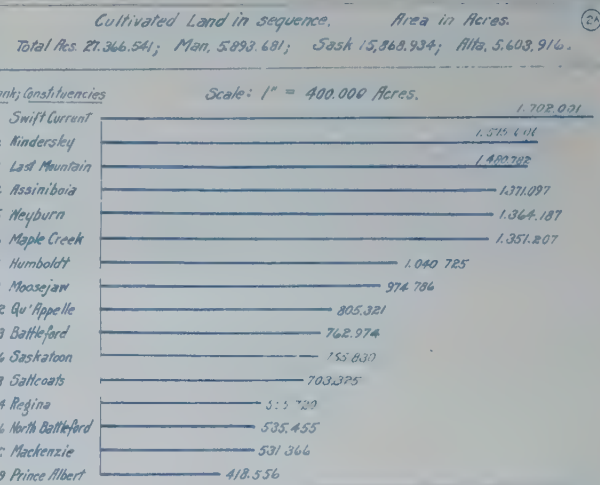 Cultivated Land in sequence. Area in Acres.
Total Acs. 27.366.541; Man, 5.893.681; Sask 15,868.934; Alta, 5.603,916.
Constituencies Scale: 1" = 400.000 Acres.
Swift Current 1.702.001
Kindersley
Last Mountain 1.480.782
Assiniboia 1.371.097
Weyburn 1.364.187
Maple Creek 1.351.207
Humboldt 1.040 725
Moosejaw 974 786
Qu'Appelle 805.321
Battleford 762.974
Saskatoon
Saltcoats 703.325
Regina
North Battleford 535.455
Mackenzie 531 366
Prince Albert 418.556